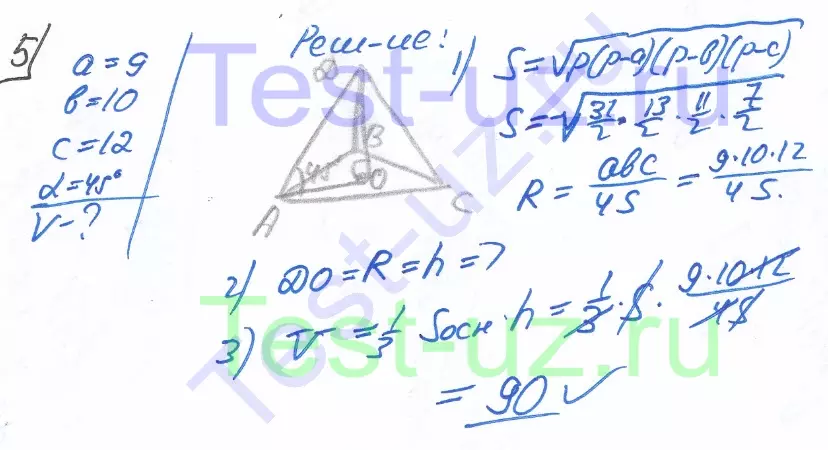 5
a=9
в=10
c=12
α=45°
V-?
Реш-ие:
D
B
45
O
A
C
1) S=√p(p-a)(p-в)(p-c)
S=√31/2·13/2·11/2·7/2
R=авс/4S=9·10·12/4S.
2) DO=R=h=>
3) V=1/3 Sосн·h=1/3·S·9·10·12/4S
=90 ✓
Test-uz.ru
Test-uz.ru
Test-uz.ru